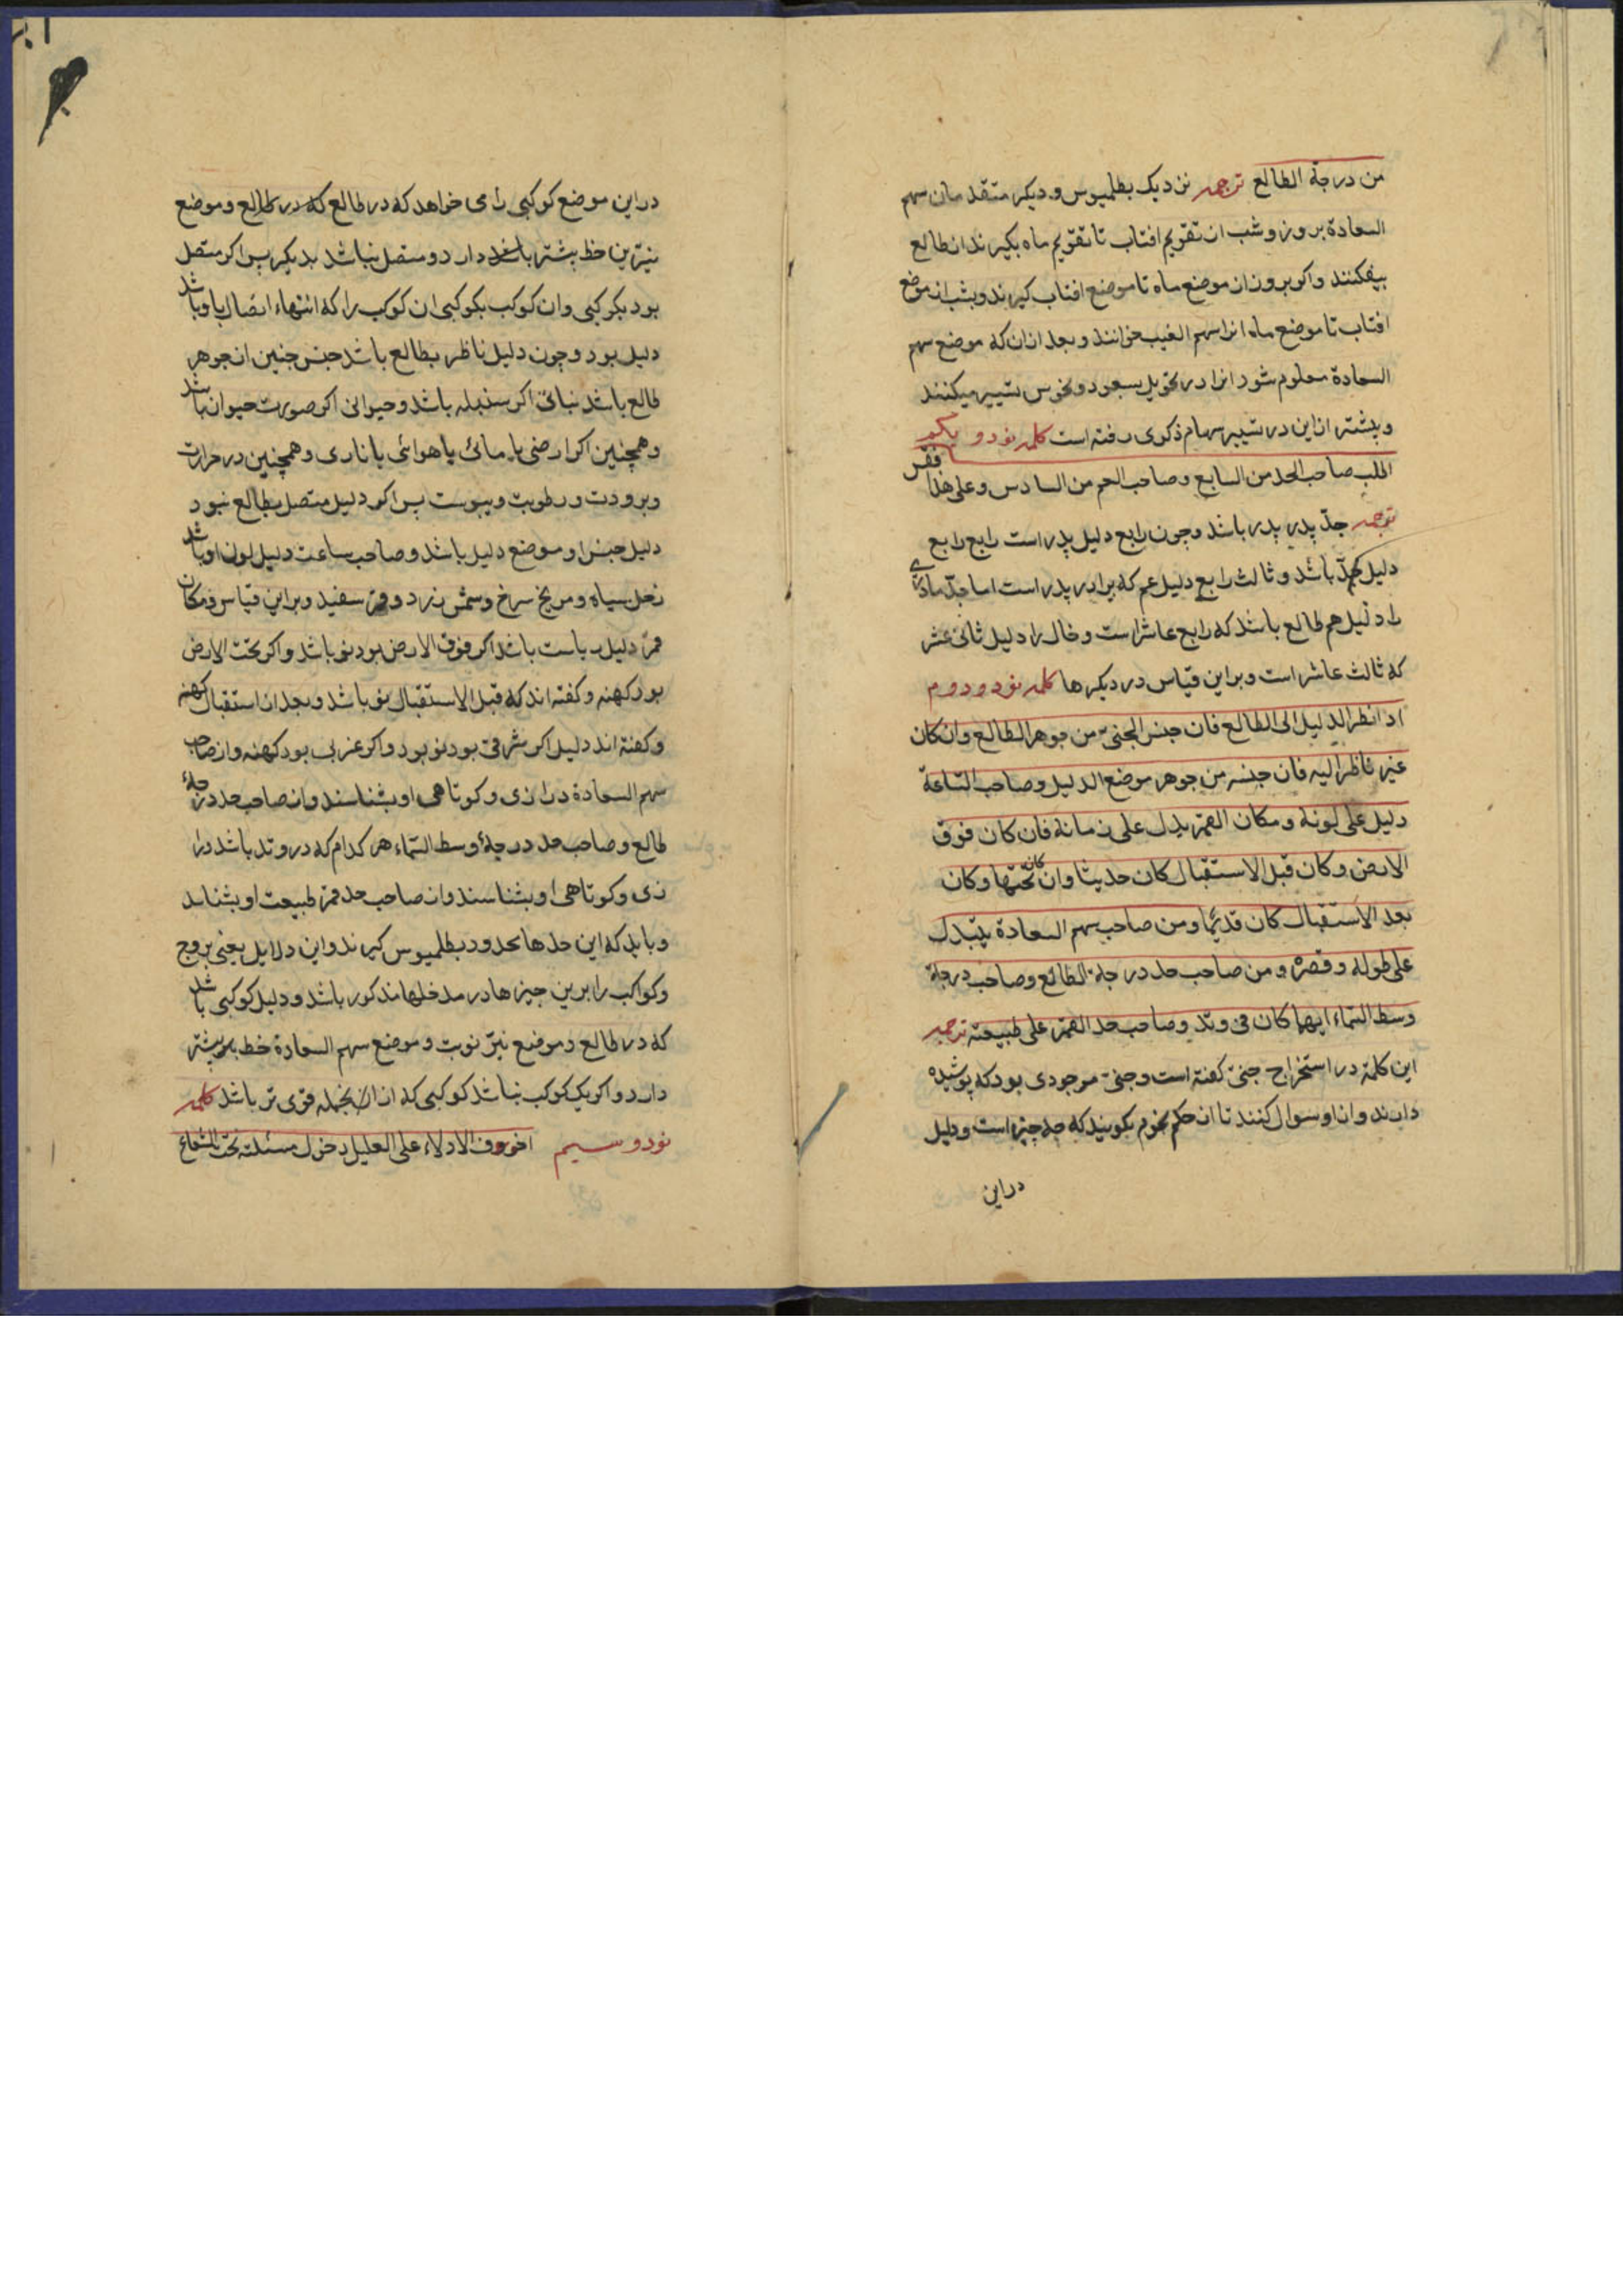 من درجة الطالع ترجمه نزدیک بطلمیوس و دیکر متقدمان سهم
السعادة بروز و شب از تقویم افتاب تا تقویم ماه بکیرند از طالع
بیفکنند واکر بروز از موضع ماه تا موضع افتاب کیرند و بشب از موضع
افتاب تا موضع ماه انرا سهم الغیب خوانند و بعد ازان که موضع سهم
السعادة معلوم شود انرا در تحویل بسعود و نحوس تسییر میکنند
و پیشتر ازین در تسییر سهام ذکری رفته است کلمه نود و یکم
اطلب صاحب الجد من السابع وصاحب العم من السادس وعلی هذا فقس
ترجمه جدّ پدر پدر باشد و چون رابع دلیل پدر است رابع رابع
دلیل جدّ باشد و ثالث رابع دلیل عم که برادر پدر است اما جدّ مادری
را دلیل هم طالع باشد که رابع عاشر است و خال را دلیل ثانی عشر
که ثالث عاشر است و براین قیاس در دیکرها کلمه نود و دوم
اذا نظر الدلیل الی الطالع فان جنس الجنیّ من جوهر الطالع وان کان
غیر ناظر الیه فان جنسه من جوهر موضع الدلیل وصاحب السّاعة
دلیل علی لونه ومکان القمر یدل علی زمانه فان کان فوق
الارض وکان قبل الاستقبال کان حدیثا وان کان تحتها وکان
بعد الاستقبال کان قدیمًا ومن صاحب سهم السعادة یستدل
علی طوله وقصره ومن صاحب حد درجة الطالع وصاحب درجة
وسط السّماء ایهما کان فی وتد وصاحب حد القمر علی طبیعته ترجمه
این کلمه در استخراج جنیّ کفته است و جنیّ موجودی بود که پوشیده
دارند و از او سوال کنند تا از حکم نجوم بکویند که چه چیز است و دلیل
در این
در این موضع کوکبی رامی خواهد که در طالع که در طالع و موضع
نیّرین حظ بیشتر باشد دارد و متصل نباشد بدیکر پس اکر متصل
بود بکوکبی و ان کوکب بکوکبی ان کوکب را که انتهاء اتصال باو باشد
دلیل بود و چون دلیل ناظر بطالع باشد جنس جنین از جوهر
طالع باشد نباتی اکر سنبله باشد و حیوانی اکر صورت حیوان باشد
و همچنین اکر ارضی یا مائی یا هوائی یا ناری و همچنین در حرارت
و برودت و رطوبت و یبوست پس اکر دلیل متصل بطالع نبود
دلیل جنس او موضع دلیل باشد و صاحب ساعت دلیل لون او باشد
زحل سیاه و مریخ سرخ و شمس زرد و قمر سفید و براین قیاس و مکان
قمر دلیل باشد اکر فوق الارض بود نو باشد و اکر تحت الارض
بود کهنه و کفته اند که قبل الاستقبال نو باشد و بعد از استقبال کهنه
و کفته اند دلیل اکر شرقی بود نو بود و اکر غربی بود کهنه و از صاحب
سهم السعادة درازی و کوتاهی او بشناسند و از صاحب حد درجهٔ
طالع و صاحب حد درجهٔ وسط السّماء هر کدام که در وتد باشد درا
زی و کوتاهی او بشناسند و از صاحب حد قمر طبیعت او بشناسد
و باید که این حدها بحدود بطلمیوس کیرند و این دلایل یعنی بروج
و کواکب را برین چیزها در مدخلها مذکور باشد و دلیل کوکبی باشد
که در طالع و موضع نیّر نوبت و موضع سهم السعادة حظ بیشتر
دارد و اکر یک کوکب نباشد کوکبی که از انجمله قوی تر باشد کلمه
نود و سیم اخوف الادلاء علی العلیل دخول مسئلته تحت الشعاع